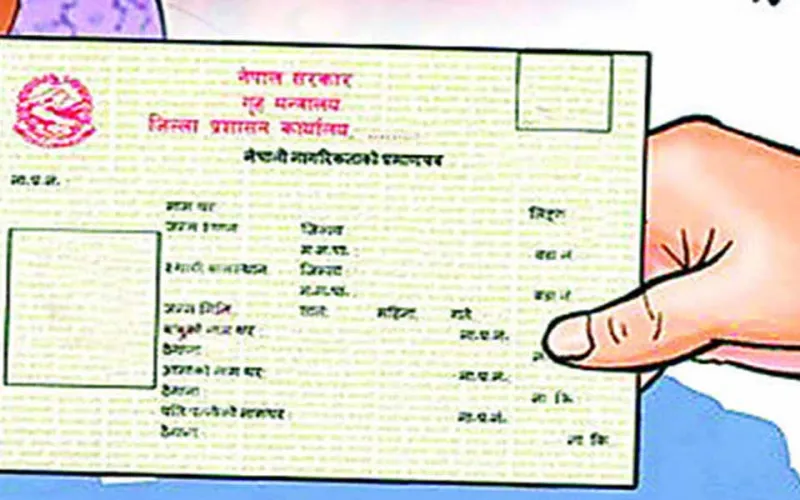 नेपाल सरकार
गृह मन्त्रालय
जिल्ला प्रशासन कार्यालय
नेपाली नागरिकताको प्रमाणपत्र
ना.प्र.नं.
नाम थर लिङ्ग
जन्म स्थान जिल्ला
वडा नं.
स्थायी बासस्थान जिल्ला
वडा नं.
जन्म मिति साल महिना गते
बाबुको नाम थर ना.प्र.नं.
ठेगाना
आमाको नाम थर ना.प्र.नं.
ठेगाना ना कि
पति पत्नीको नामथर ना.प्र.नं.
ठेगाना ना कि